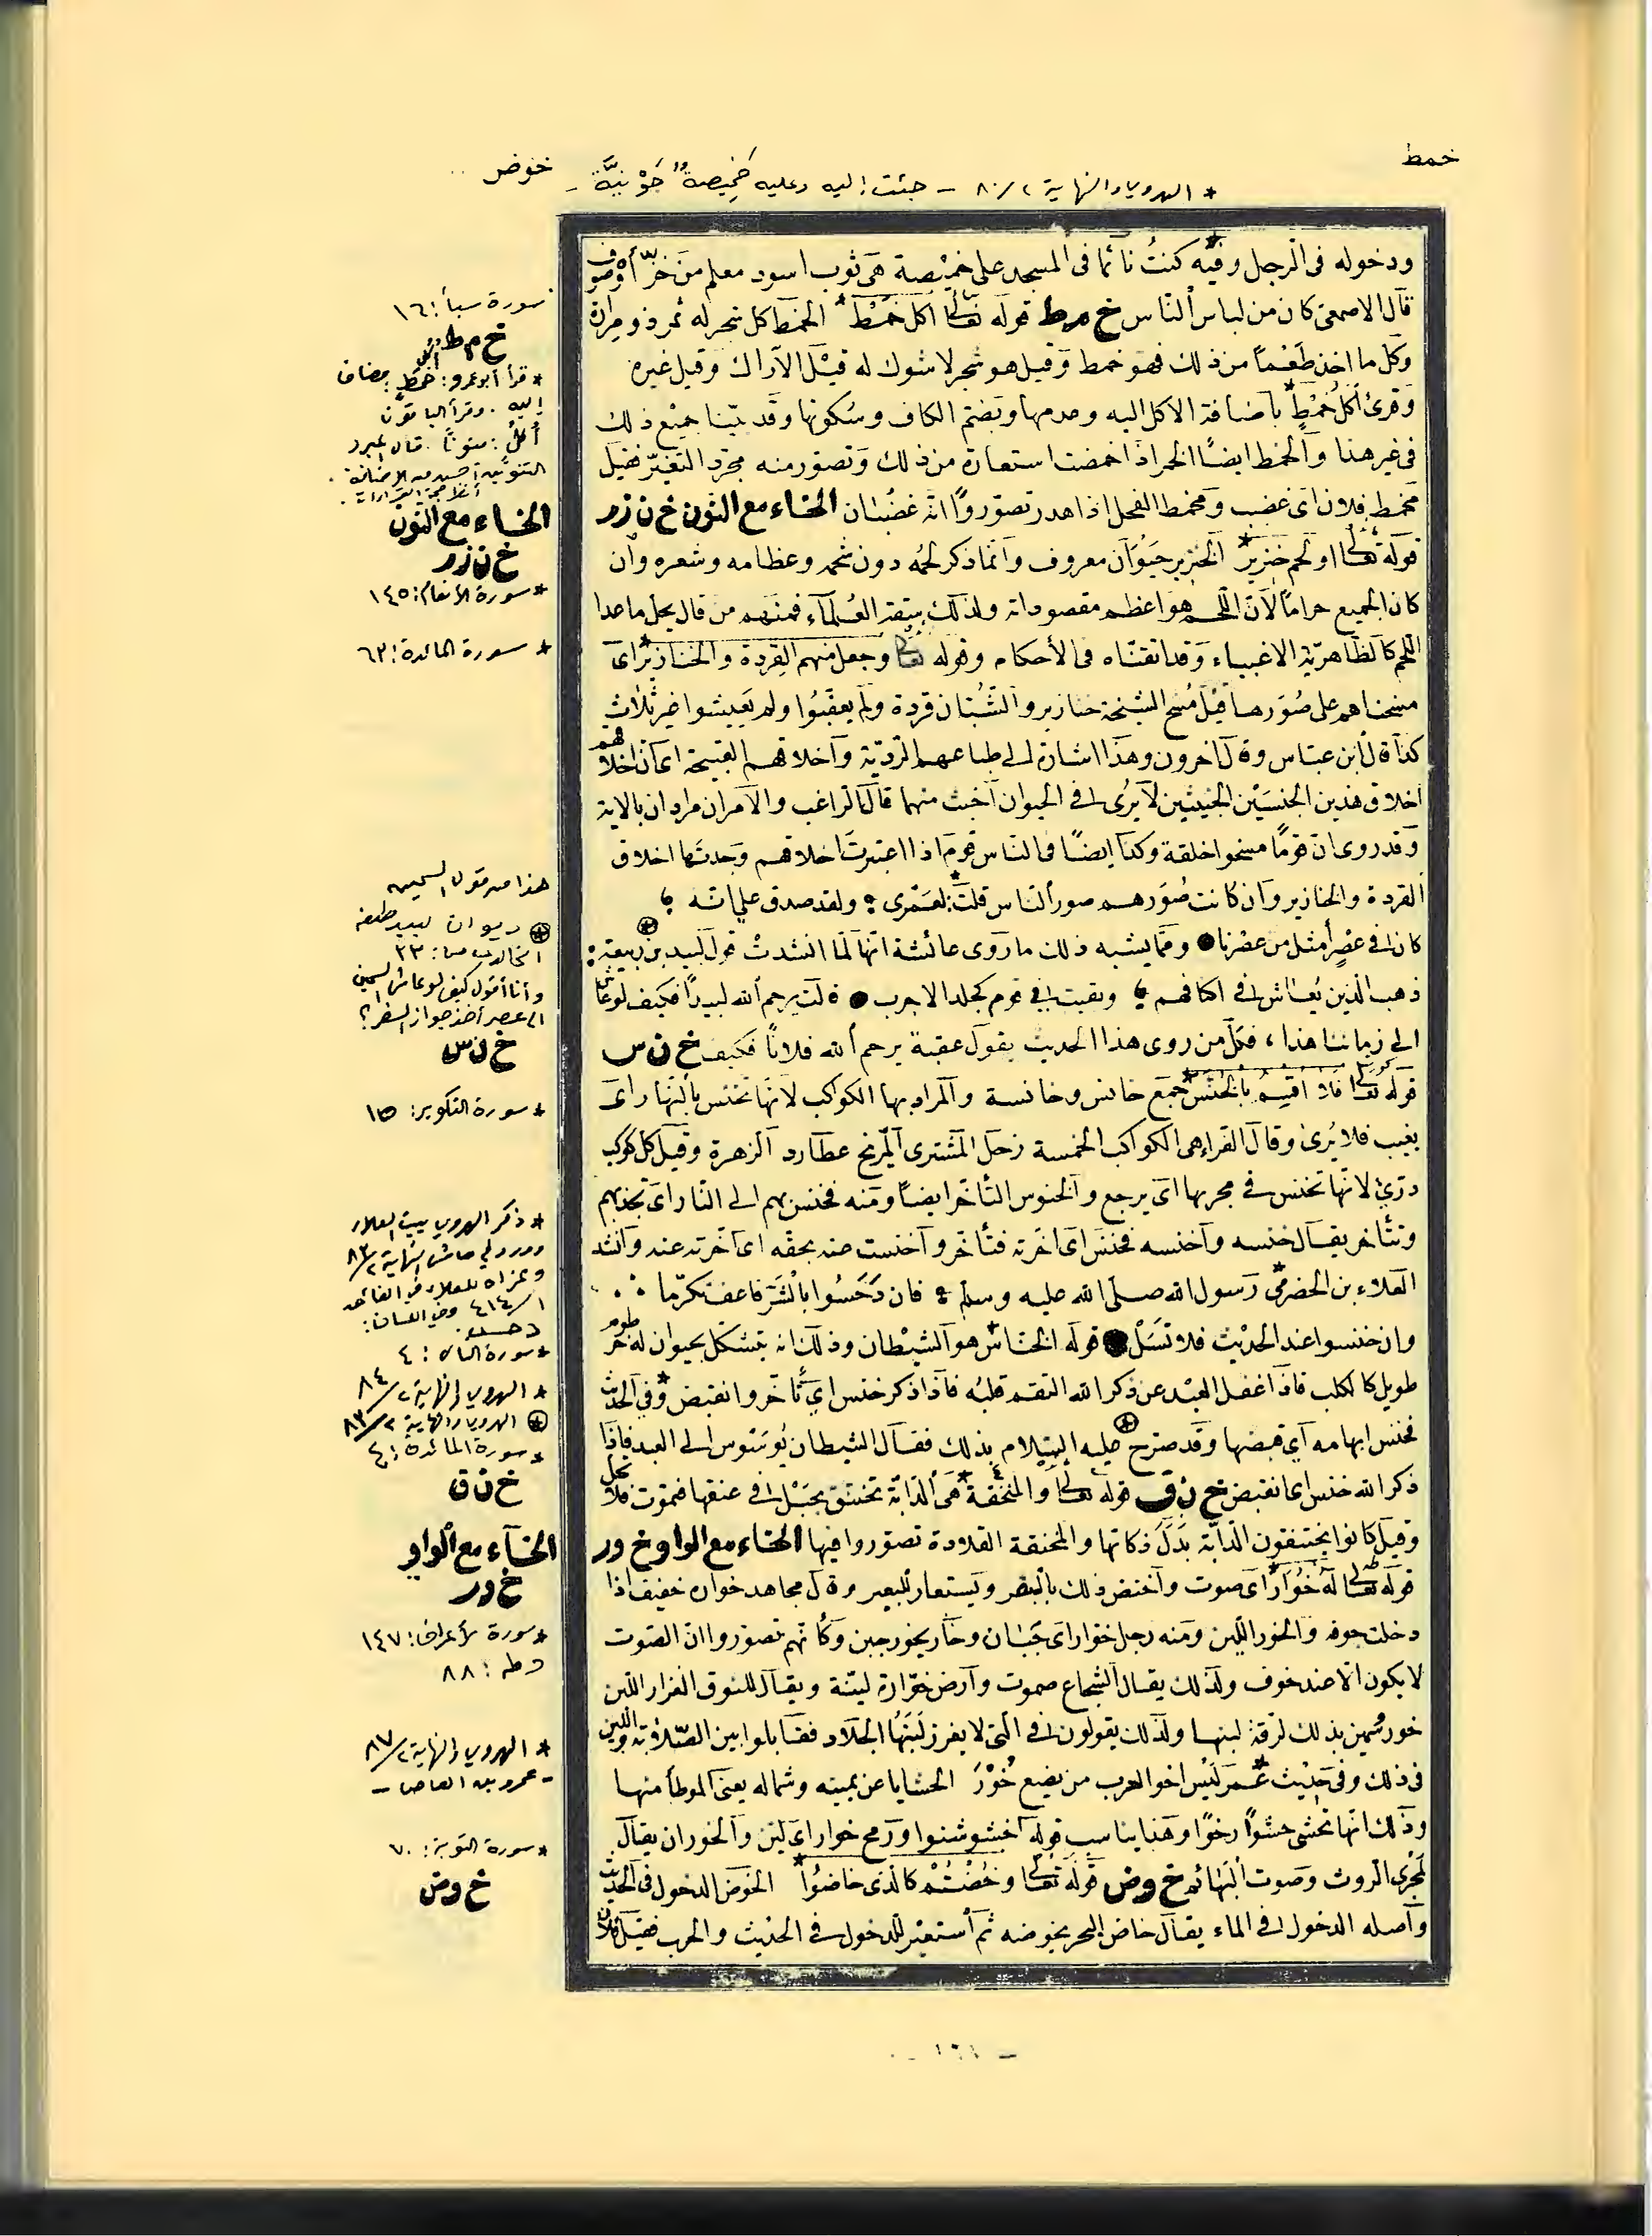 خمط
خوض
* الهروي والنهاية ٢/٨٠ - جئت إليه وعليه خَمِيصةٌ جَوْنيَّة -
ودخوله في الرجل وفيه كنتُ نائما في المسجد على خميصة هي ثوب اسود معلم من خزّ أو صوف
قال الاصمعي كان من لباس الناس خ م ط قوله تعالى اكل خَمْطٍ* الخمط كل شجر له ثمر ذو مرارة
وكل ما اخذ طَعْماً من ذلك فهو خمط وقيل هو شجر لا شوك له قيل الاراك وقيل غيره
وقرئ أكل خمطٍ* باضافة الاكل اليه وعدمها وبضم الكاف وسكونها وقد بيّنا جميع ذلك
في غير هذا والخمط ايضًا الخمر اذا حمضت استعارة من ذلك وتصور منه مجرّد التغيّر فقيل
تخمط فلان اى غضب وتخمط الفحل اذا هدر تصوّروا انه غضبان الخاء مع النون خ ن ز ر
قوله تعالى او لحم خنزير* الخنزير حيوان معروف وانما ذكر لحمه دون شحمه وعظامه وشعره وان
كان الجميع حراماً لان اللحم هو اعظم مقصوداته ولذلك يتفقه العلماء فمنهم من قال يحل ما عدا
اللحم كالظاهرية الاغبياء وقد اتقناه في الأحكام وقوله تعالى وجعل منهم القردة والخنازير* اى
مسخناهم على صُوَرها قيل مُسخ الشيخة خنازير والشبّان قردة ولم يعقبُوا ولم يعيشوا غير ثلاث
كذا قال ابن عباس وقال آخرون وهذا اشارة الى طباعهم الرديّة واخلاقهم القبيحة اى ان اخلاقهم
اخلاق هذين الجنسين الخبيثين لا يُرى في الحيوان اخبث منهما قال الراغب والامران مرادان بالاية
وقد روى انّ قومًا مسخوا خلقة وكذا ايضًا في الناس قوم اذا اعتبرتَ اخلاقهم وجدتها اخلاق
القردة والخنازير وان كانت صُوَرهم صور الناس قلت* لعَمْرى ؛ ولقد صدق على انه ؛
كان في عصرٍ أمثل من عصرنا ● ومما يشبه ذلك ما روى عائشة انها لمّا انشدتْ قول لبيد بن ربيعة :
ذهب الذين يُعاش في اكنافهم ؛ وبقيت في قوم كجلد الاجرب ● قالت يرحم الله لبيدًا فكيف لو عاش
الى زماننا هذا ، فكل من روى هذا الحديث يقول عقبة يرحم الله فلانًا فكيف خ ن س
قوله تعالى فلا اقسِمُ بالخُنَّس* جمع خانس وخانسة والمراد بها الكواكب لانها تخنس بالنهار اى
يغيب فلا يُرى وقال الفراء هى الكواكب الخمسة زحل المشترى المريخ عطارد الزهرة وقيل كل كوكب
درّيّ لانها تخنس في مجريها اى يرجع والخنوس التأخر ايضاً ومنه فخنس بهم الى النار اى تجذبهم
وتتأخر يقال خنسه وأخنسه فخنس اى اخرته فتأخر وأخنست عنه بحقّه اى أخرته عنه وانشد
العلاء بن الحضرميّ* رسول الله صلى الله عليه وسلم ؛ فان دَحَسُوا بالشرّ فاعف تكرّما
وان خنسوا عند الحديث فلا تسَلْ ● قوله الخناس* هو الشيطان وذلك انه يتشكل بحيوان له خرطوم
طويل كالكلب فاذا غفل العبد عن ذكر الله التقم قلبه فاذا ذكر خنس اي تأخر وانقبض* وفي الحديث
فخنس ابهامه اي قبضها وقد صرح عليه السلام بذلك فقال الشيطان يُوسوس الى العبد فاذا
ذكر الله خنس اى انقبض خ ن ق قوله تعالى والمنخنقة* هى الدابة تختنق بحبل في عنقها فتموت فلا تحل
وقيل كانوا يختنقون الدابة بَدَلَ ذكاتها والمخنقة القلادة تصوّروا فيها الخاء مع الواو خ و ر
قوله تعالى له خُوَارٌ اى صوت واختص ذلك بالبقر ويستعار للبعير وقال مجاهد خواره خفيق اذا
دخلت جوفه والخور اللين ومنه رجل خوّار اى جبان وخار يخور جبن وكأنهم تصوّروا انّ الصوت
لا يكون الا عند خوف ولذلك يقال الشجاع صموت وارض خوّارة لينة ويقال للنوق الغزار اللبن
خور سُمين بذلك لرقّة لبنها ولذلك يقولون في التى لا يغزر لبنها الجلاد فقابلوا بين الصّلابة واللين
في ذلك وفي حديث عُمر* ليس اخو الحرب من يضع خُوْرَ الحشايا عن يمينه وشماله يعنى الموطأ منها
وذلك انها تحشى حشوًا رخوًا وهذا يناسب قوله اخشوشنوا ورمح خوار اى لين والخوران يقال
لمجرى الروث وصوت البهائم خ و ض قوله تعالى وخُضْتُمْ كالذى خاضُوا* الخوض الدخول في الحديث
وأصله الدخول في الماء يقال خاض البحر يخوضه ثم أستعير للدخول في الحديث والحرب فقيل فلان
سورة سبأ: ١٦
خ م ط
* قرأ أبو عمرو: أكل خمطٍ بمضاف
إليه. وقرأ الباقون
أُكلٍ: منونًا. قال المبرد
التنوين أحسن من الإضافة.
انظر حجة القراءات.
الخاء مع النون
خ ن ز ر
* سورة الأنعام: ١٤٥
* سورة المائدة: ٦٣
هذا من قول السمين
⊛ ديوان لبيد طبعة
الخالدي ص: ٣٣
وأنا أقول كيف لو عاش السمين
الى عصر أخذ جواز السفر؟
خ ن س
* سورة التكوير: ١٥
* ذكر الهروي بيت العلاء
وورد في هامش النهاية ٢/٨٣
وعزاه للعلاء في الفائق
١/٤١٤ وفي اللسان:
دحس.
* سورة الناس: ٤
* الهروي والنهاية ٢/٨٤
⊛ الهروي والنهاية ٢/٨٣
* سورة المائدة: ٤
خ ن ق
الخاء مع الواو
خ ور
* سورة الأعراف: ١٤٧
وطه: ٨٨
* الهروي والنهاية ٢/٨٧
- عمرو بن العاص -
* سورة التوبة: ٧٠
خ و ض